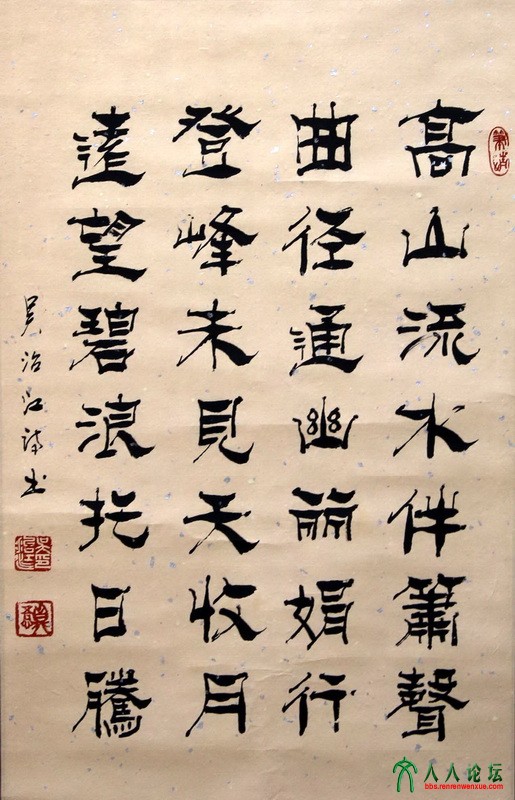 高山流水伴簫聲
曲径通幽丽娟行
登峰未見天收月
遠望碧浪托日騰
吴治江诗书
人人论坛
bbs.renrenwenxue.com